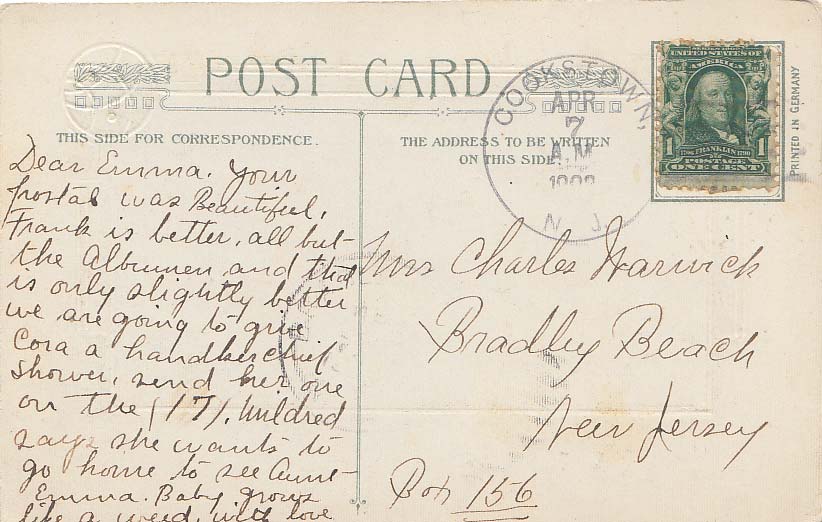 POST CARD
THIS SIDE FOR CORRESPONDENCE.
THE ADDRESS TO BE WRITTEN
ON THIS SIDE
PRINTED IN GERMANY
SERIES 1902
UNITED STATES OF
AMERICA
1 1
1706 FRANKLIN 1790
POSTAGE
ONE CENT
COOKSTOWN,
APR
7
A.M
N. J.
Dear Emma. Your
postal was Beautiful,
Frank is better, all but
the Albumen, and that
is only slightly better
we are going to give
Cora a handkerchief
shower, send her one
on the (17), Mildred
says she wants to
go home to see Aunt
Emma. Baby grows
like a weed, with love
Mrs Charles Warwick
Bradley Beach
New Jersey
Box 156